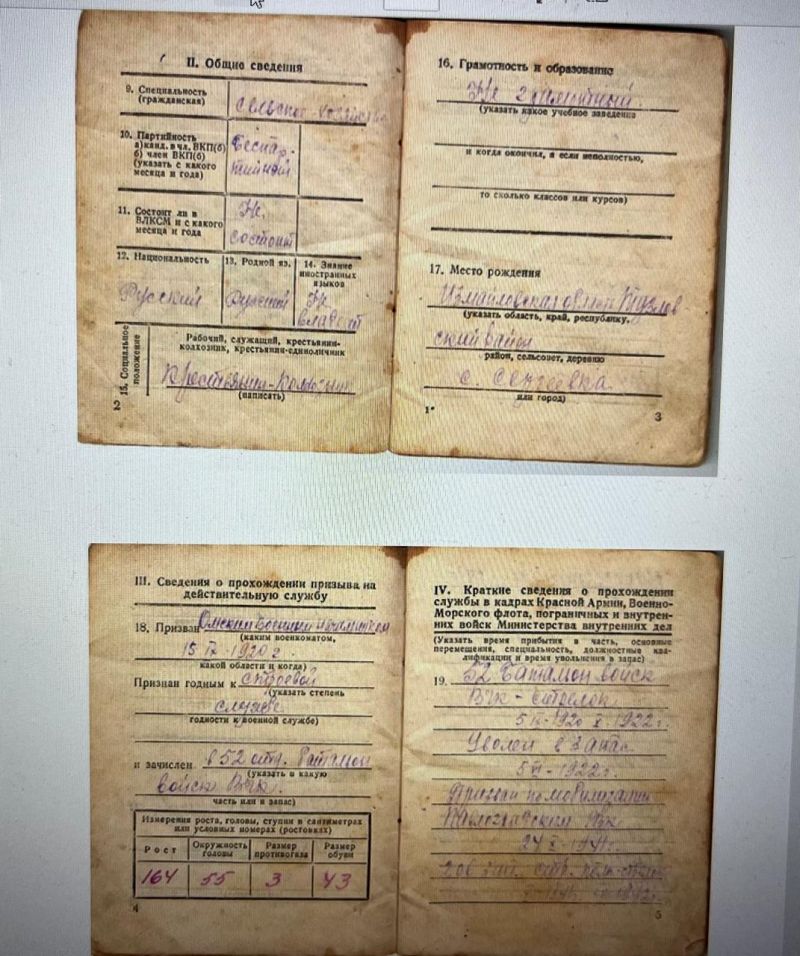 II. Общие сведения
9. Специальность
(гражданская)
сельское хозяйство
10. Партийность
а) канд. в чл. ВКП(б)
б) член ВКП(б)
(указать с какого
месяца и года)
Беспар-
тийный
11. Состоит ли в
ВЛКСМ и с какого
месяца и года
Не
состоит
12. Национальность
Русский
13. Родной яз.
Русский
14. Знание
иностранных
языков
Не
владеет
15. Социальное
положение
Рабочий, служащий, крестьянин-
колхозник, крестьянин-единоличник
Крестьянин-Колхозник
(написать)
2
16. Грамотность и образование
Не грамотный
(указать какое учебное заведение
и когда окончил, а если неполностью,
то сколько классов или курсов)
17. Место рождения
Измайловская
(указать область, край, республику,
ский район
район, сельсовет, деревню
с. Сергеевка
или город)
1*
3
III. Сведения о прохождении призыва на
действительную службу
18. Призван Омским Военным
(каким военкоматом,
15 1920 г.
какой области и когда)
Признан годным к строевой
(указать степень
службе
годности к военной службе)
и зачислен в 52 отд. батальон
(указать в какую
войск Вчк.
часть или в запас)
Измерения роста, головы, ступни в сантиметрах
или условных номерах (ростовках)
Рост
Окружность
головы
Размер
противогаза
Размер
обуви
164 55 3 43
4
IV. Краткие сведения о прохождении
службы в кадрах Красной Армии, Военно-
Морского флота, пограничных и внутрен-
них войск Министерства внутренних дел
(Указать время прибытия в часть, основные
перемещения, специальность, должностные ква-
лификации и время увольнения в запас)
19. 52 Батальон войск
Вчк - стрелок
1920 1922 г.
Уволен в запас
1922 г.
Призван по мобилизации
Павлоградским Рвк
24 1941 г.
зап. стр. полк
5